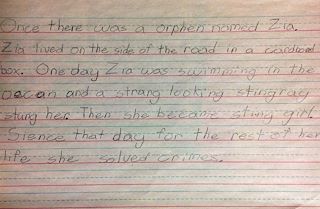 Once there was a orphen named Zia.
Zia lived on the side of the road in a cardboard
box. One day Zia was swimming in the
ocean and a strang looking stingray
stung her. Then she became sting girl.
Sience that day for the rest of her
life she solved crimes.